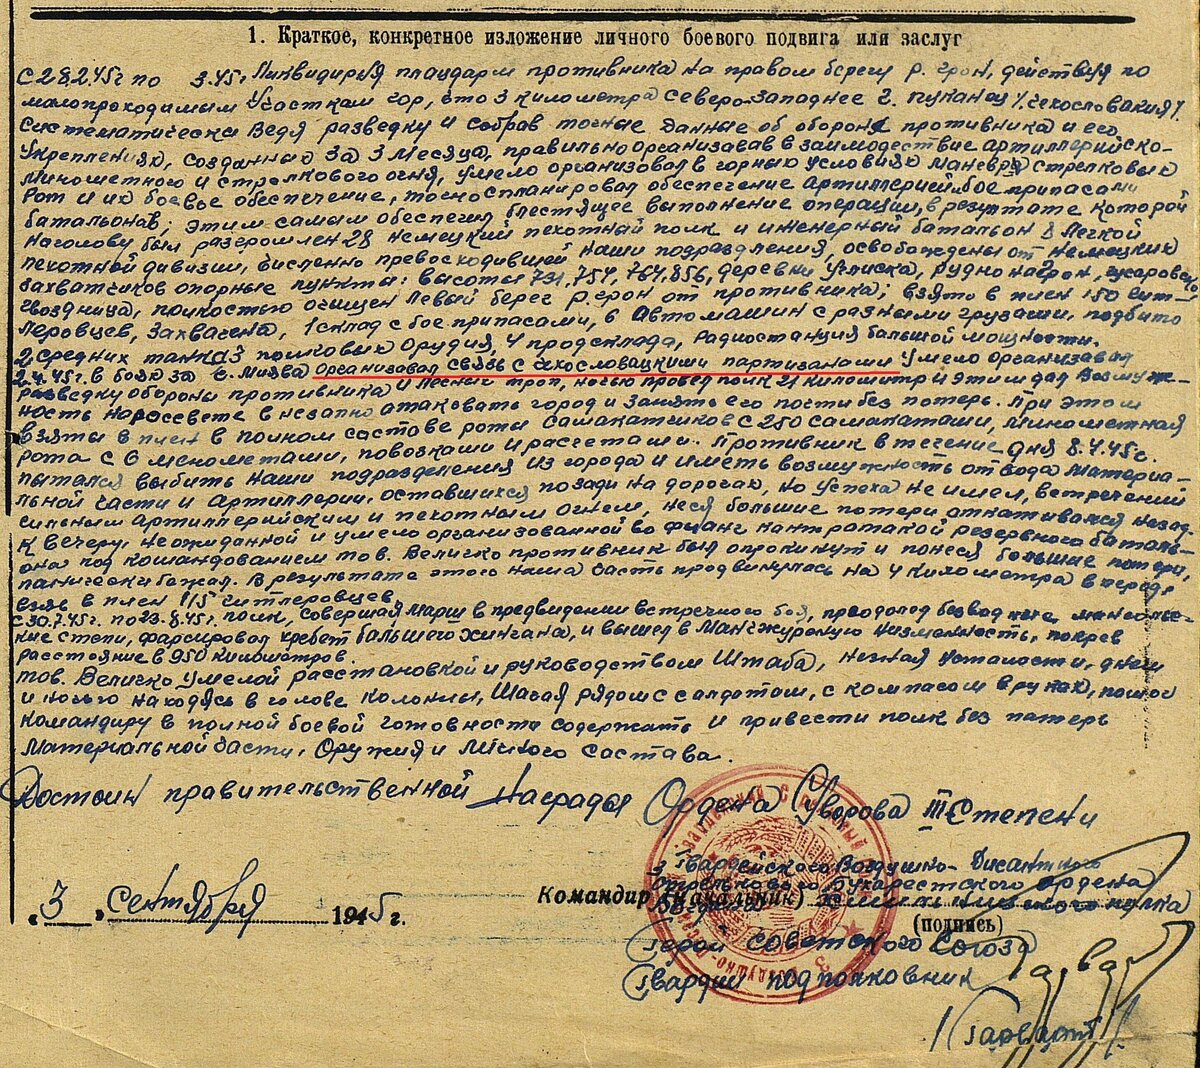 1. Краткое, конкретное изложение личного боевого подвига или заслуг
С 28.2.45г по 3.45г Ликвидируя плацдарм противника на правом берегу р. Грон, действуя по
малопроходимым участкам гор, что 3 километра северо-западнее г. Пуканец /Чехословакия/.
Систематически ведя разведку и собрав точные данные об обороне противника и его
укреплениях, созданных за 3 месяца, правильно организовав взаимодествие артиллерийско-
миномётного и стрелкового огня, умело организовал в горных условиях маневр стрелковых
рот и их боевое обеспечение, точно спланировал обеспечение артиллерией, боеприпасами
батальонов; этим самым обеспечил блестящее выполнение операции, в результате которой
наголову был разгромлен 28 немецкий пехотный полк и инженерный батальон 8 Легкой
пехотной дивизии, численно превосходившей наши подразделения, освобождены от немецких
захватчиков опорные пункты: высоты 731, 754, 764, 856, деревни Углиска, Рудно на Грон,
Гвоздница, полностью очищен левый берег р. Грон от противника; взято в плен 150 гит-
леровцев, захвачена, 1 склад с боеприпасами, 6 автомашин с разными грузами, подбито
2 средних танка, 3 полковых орудия, 4 продсклада, радиостанция большой мощности.
2.4.45г. в боях за г. Миява организовал связь с чехословацкими партизанами умело организовал
разведку обороны противника и лесных троп, ночью провел полк 21 километр и этим дал возмуж-
ность на рассвете внезапно атаковать город и занять его почти без потерь. При этом
взяты в плен в полном составе роты самакатчиков с 250 самакатами, минометная
рота с 6 менометами, повозками и расчетами. Противник в течение дня 8.4.45г.
пытался выбить наши подразделения из города и иметь возмужность отвода материа-
льной части и артиллерии, оставшихся позади на дорогах, но успеха не имел, встреченный
сильным артиллерийским и пехотным огнем, неся большие потери откатывался назад.
К вечеру, неожиданной и умело организованной во фланг контратакой резервного баталь-
она под командованием тов. Величко противник был опрокинут и понеся большие потери,
панически бежал. В результате этого наша часть продвинулась на 4 километра вперед,
взяв в плен 115 гитлеровцев.
С 30.7.45г. по 23.8.45г. полк, совершая марш в предвидении встречного боя, преодолел безводные, манчжурс-
кие степи, фарсировал хребет большего Хингана, и вышел в Манчжурскую низменность, покрев
расстояние в 950 километров.
Тов. Величко умелой расстановкой и руководством штаба, не зная усталости, днем
и ночью находясь в голове колонны, шагая рядом с солдатом, с компасом в руках, помог
командиру в полной боевой готовности содержать и привести полк без потерь
материальной части, оружия и личного состава.
Достоин правительственной награды Ордена Суворова III Степени
3 Гвардейского Воздушно-Дисантного
Стрелкового Бухарестского ордена
Командир (Начальник)
полка
(подпись)
„3" сентября 1945 г.
Герой Советского Союза
Гвардии подполковник